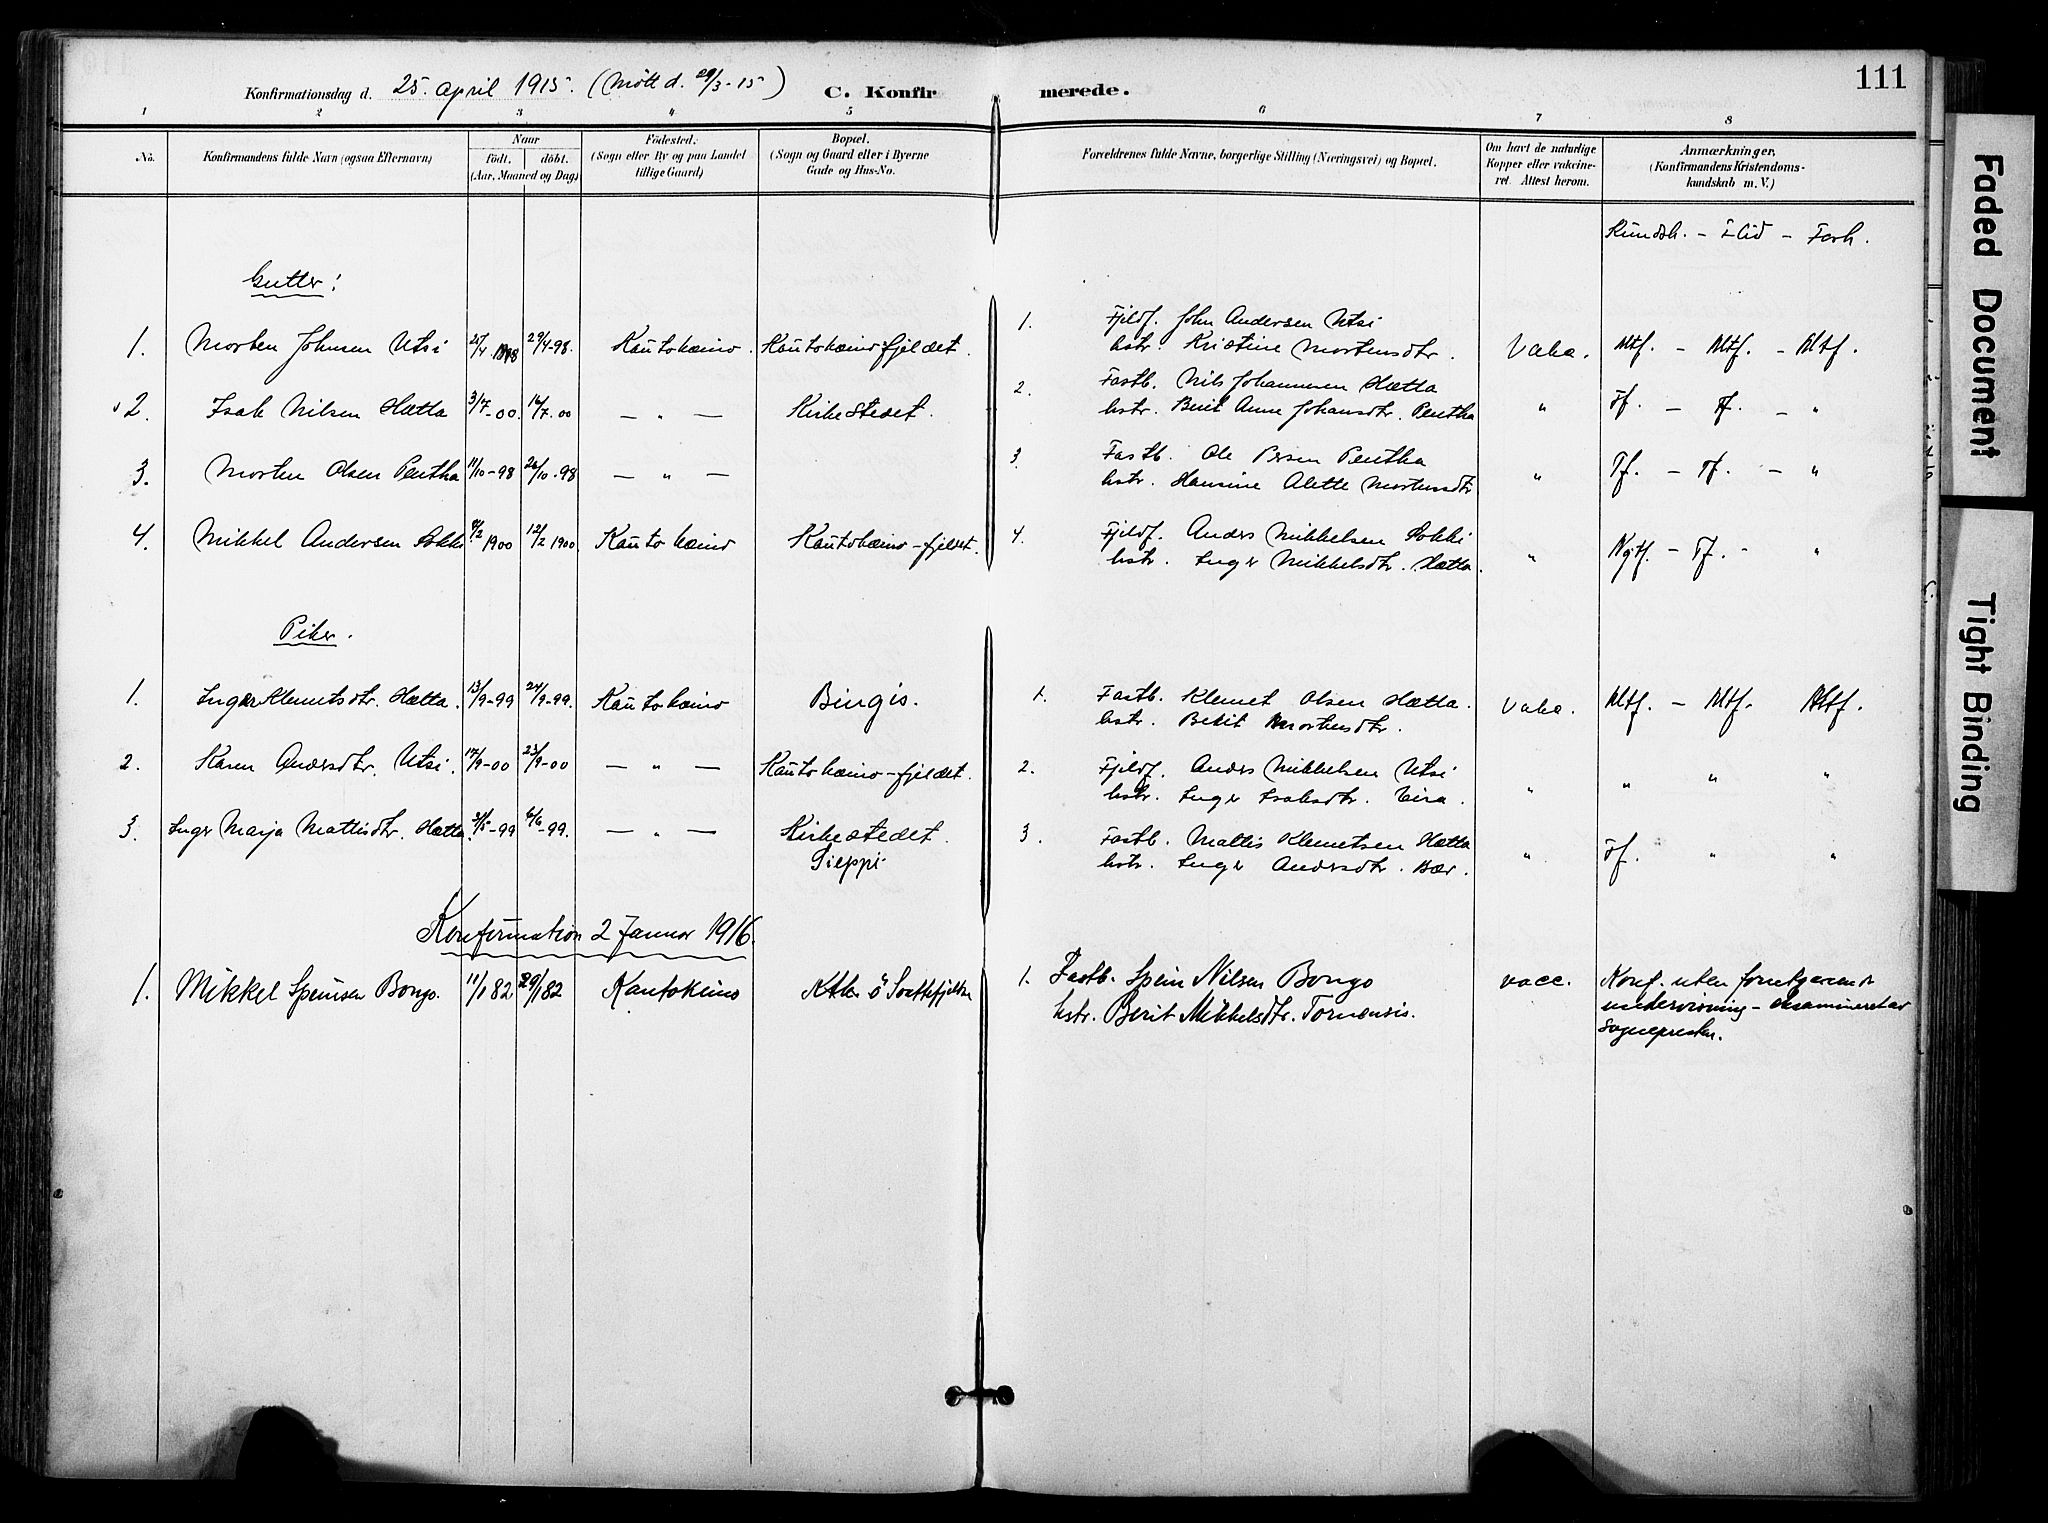 Konfirmationsdag d. 25. april 1915. (Mött d. 29/3-15) C. Konfirmerede. 111
1 2 3 4 5 6 7 8
No. Konfirmandens fulde Navn (ogsaa Efternavn)
Naar
født. døbt.
(Aar, Maaned og Dag)
Fødested.
(Sogn eller By og paa Landet
tillige Gaard)
Bopæl.
(Sogn og Gaard eller i Byerne
Gade og Hus-No.
Forældrenes fulde Navne, borgerlige Stilling (Næringsvei) og Bopæl.
Om havt de naturlige
Kopper eller vakcine-
ret. Attest herom.
Anmærkninger,
(Konfirmandens Kristendoms-
kundskab m. V.)
Kundsk. - Flid - Forh.
Gutter:
1. Morten Johnsen Utsi 29/4-98. Kautokeino. Kautokeinofjeldet.
1. Fjeldf. John Andersen Utsi
hstr. Kristine Mortensdtr. Vakc. Mtf. - Mtf. - Mtf.
2. Isak Nilsen Hætta 3/7-00. 16/7.00 — " — Kirkestedet.
2. Fastb. Nils Johannesen Hætta
hstr. Berit Anne Johansdtr. Pentha " Tf. - Tf. - "
3. Morten Olsen Pentha 11/10-98 26/10-98 — " —
3. Fastb. Ole Persen Pentha
hstr. Hansine Alette Mortensdtr " Tf. - Tf. - "
4. Mikkel Andersen Sokki 12/2 1900. Kautokeino Kautokeino-fjeldet.
4. Fjeldf. Anders Mikkelsen Sokki
hstr. Inger Mikkelsdtr. Hætta. " Ngtf. - Tf. - "
Piker.
1. Inger Klemetsdtr. Hætta. 13/9-99 24/9-99. Kautokeino Bingis.
1. Fastb. Klemet Olsen Hætta.
hstr. Berit Mortensdtr. Vakc. Mtf. - Mtf. Mtf.
2. Karen Andersdtr. Utsi. 17/9-00 23/9-00 — " — Kautokeino-fjeldet.
2. Fjeldf. Anders Mikkelsen Utsi
hstr. Inger Isaksdtr. Eira. " " " "
3. Inger Marja Mattisdtr. Hætta. 6/6-99. — " — Kirkestedet.
Sieppi
3. Fastb. Mattis Klemetsen Hætta
hstr. Inger Andersdtr. Bær. " Tf. " "
Konfirmation 2 Januar 1916.
1. Mikkel Speinsen Bongo. 11/1 82 29/1 82 Kautokeino
1. Fastb. Spein Nilsen Bongo vacc. Konf. uten forutgaaende
hstr. Berit Mikkelsdtr. Tornensis. undervisning - eksamineret av
sognepresten.
Faded Document
Tight Binding